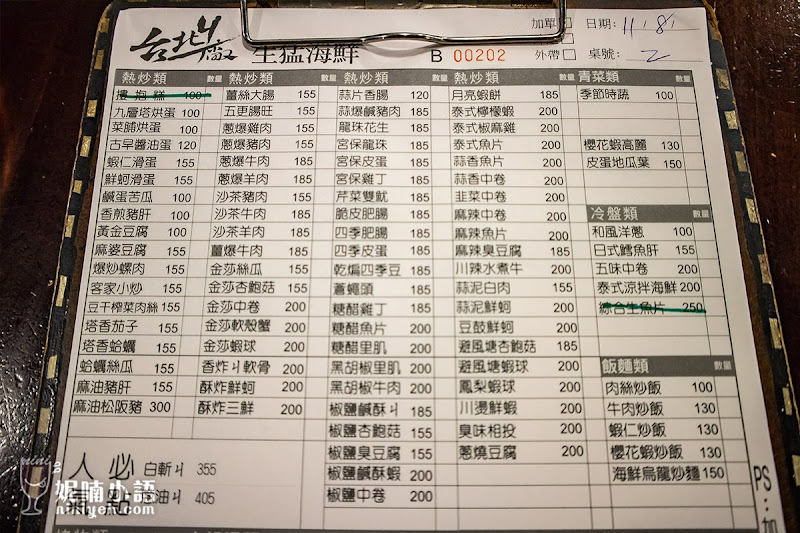 台北ㄐ廠 生猛海鮮
B 00202
加單 日期: 11/8
外帶 桌號: 2
熱炒類 數量
摟抱糕 100
九層塔烘蛋 100
菜脯烘蛋 100
古早醬油蛋 120
蝦仁滑蛋 155
鮮蚵滑蛋 155
鹹蛋苦瓜 100
香煎豬肝 100
黃金豆腐 100
麻婆豆腐 155
爆炒螺肉 155
客家小炒 155
豆干榨菜肉絲 155
塔香茄子 155
塔香蛤蠣 155
蛤蠣絲瓜 155
麻油豬肝 155
麻油松阪豬 300
熱炒類 數量
薑絲大腸 155
五更腸旺 155
蔥爆雞肉 155
蔥爆豬肉 155
蔥爆牛肉 185
蔥爆羊肉 185
沙茶豬肉 155
沙茶牛肉 185
沙茶羊肉 185
薑爆牛肉 185
金莎絲瓜 155
金莎杏鮑菇 155
金莎中卷 200
金莎軟殼蟹 200
金莎蝦球 200
香炸ㄐ軟骨 200
酥炸鮮蚵 200
酥炸三鮮 200
熱炒類 數量
蒜片香腸 120
蒜爆鹹豬肉 185
龍珠花生 185
宮保龍珠 185
宮保皮蛋 185
宮保雞丁 185
芹菜雙魷 185
脆皮肥腸 185
四季肥腸 185
四季皮蛋 185
乾煸四季豆 185
蒼蠅頭 185
糖醋雞丁 185
糖醋魚片 200
糖醋里肌 200
黑胡椒里肌 200
黑胡椒牛肉 200
椒鹽鹹酥ㄐ 185
椒鹽杏鮑菇 155
椒鹽臭豆腐 155
椒鹽鹹酥蝦 200
椒鹽中卷 200
熱炒類 數量
月亮蝦餅 185
泰式檸檬蝦 200
泰式椒麻雞 200
泰式魚片 200
蒜香魚片 200
蒜香中卷 200
韭菜中卷 200
麻辣中卷 200
麻辣魚片 200
麻辣臭豆腐 185
川辣水煮牛 200
蒜泥白肉 155
蒜泥鮮蚵 200
豆鼓鮮蚵 200
避風塘杏鮑菇 185
避風塘蝦球 200
鳳梨蝦球 200
川燙鮮蝦 200
臭味相投 200
蔥燒豆腐 200
青菜類 數量
季節時蔬 100
櫻花蝦高麗 130
皮蛋地瓜葉 150
冷盤類 數量
和風洋蔥 100
日式鱈魚肝 155
五味中卷 200
泰式涼拌海鮮 200
綜合生魚片 250
飯麵類 數量
肉絲炒飯 100
牛肉炒飯 130
蝦仁炒飯 130
櫻花蝦炒飯 130
海鮮烏龍炒麵 150
人氣必點
白斬ㄐ 355
油ㄐ 405
PS:加
nini
妮喃小語
niniyeh.com